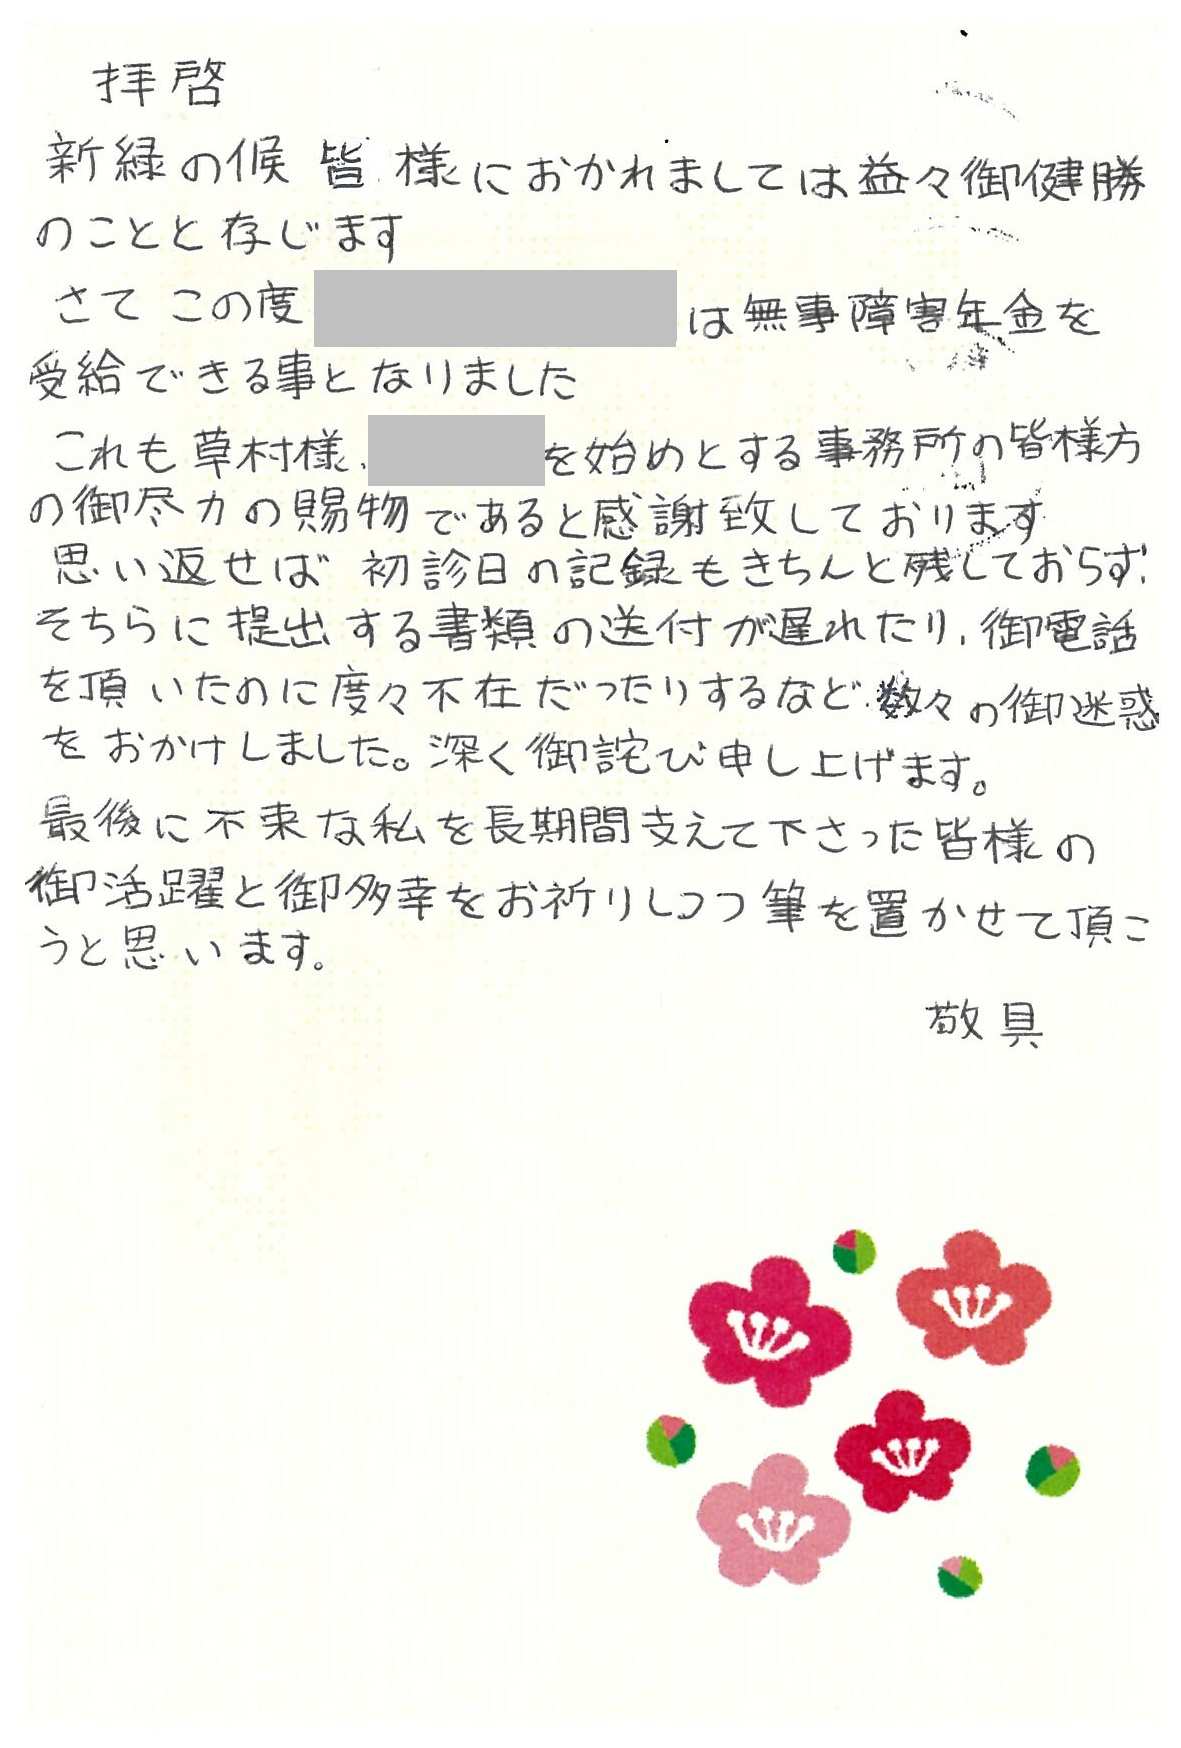 拝啓
新緑の候 皆様におかれましては益々御健勝
のことと存じます
さて この度
は無事障害年金を
受給できる事となりました
これも草村様、
を始めとする事務所の皆様方
の御尽力の賜物であると感謝致しております
思い返せば 初診日の記録もきちんと残しておらず、
そちらに提出する書類の送付が遅れたり、御電話
を頂いたのに度々不在だったりするなど、数々の御迷惑
をおかけしました。深く御詫び申し上げます。
最後に不束な私を長期間支えて下さった皆様の
御活躍と御多幸をお祈りしつつ筆を置かせて頂こ
うと思います。
敬具